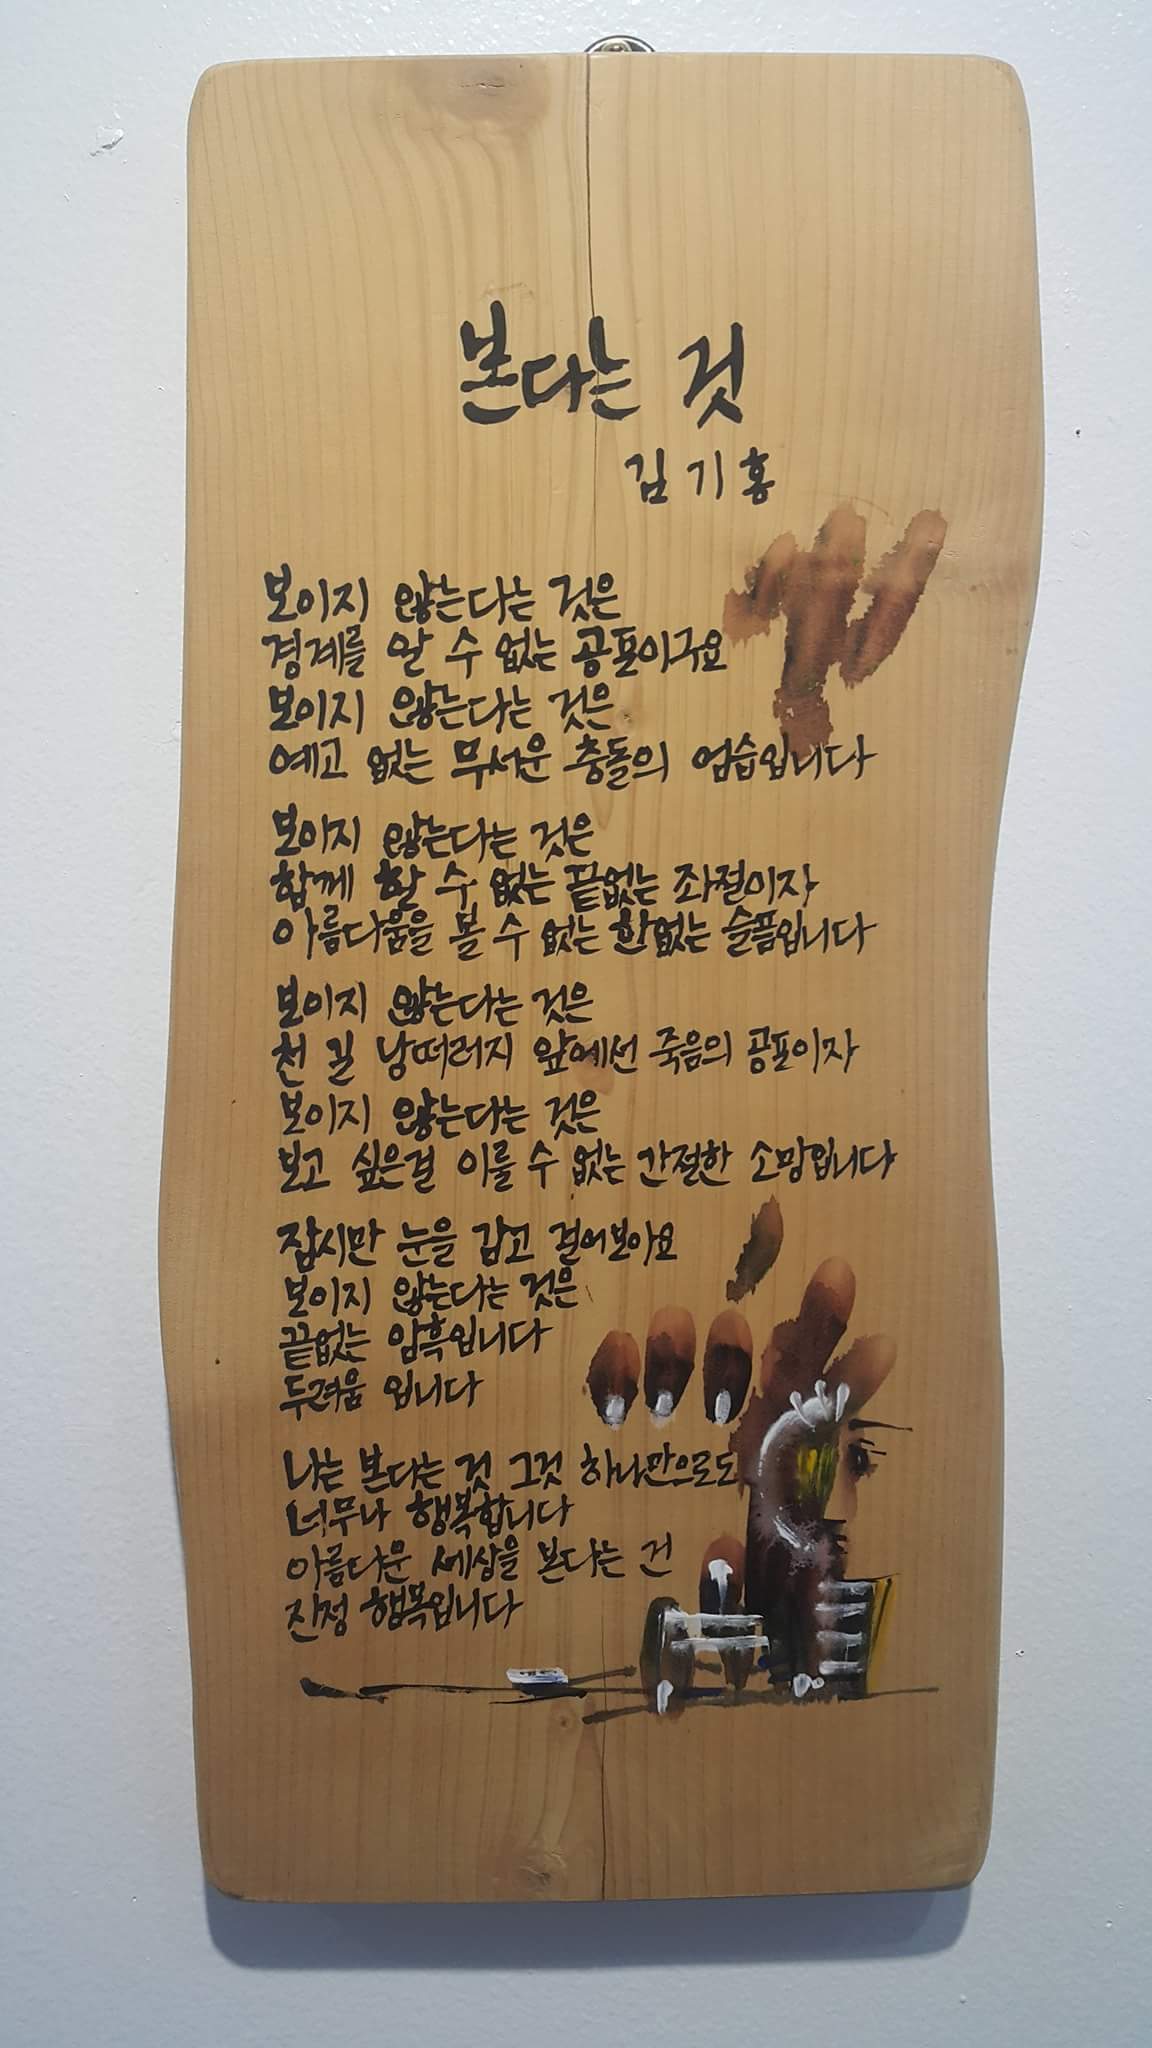 본다는 것
김기홍
보이지 않는다는 것은
경계를 알 수 없는 공포이구요
보이지 않는다는 것은
예고 없는 무서운 충돌의 엄습입니다
보이지 않는다는 것은
함께 할 수 없는 끝없는 좌절이자
아름다움을 볼 수 없는 한없는 슬픔입니다
보이지 않는다는 것은
천 길 낭떠러지 앞에선 죽음의 공포이자
보이지 않는다는 것은
보고 싶은걸 이룰 수 없는 간절한 소망입니다
잠시만 눈을 감고 걸어보아요
보이지 않는다는 것은
끝없는 암흑입니다
두려움 입니다
나는 본다는 것 그것 하나만으로도
너무나 행복합니다
아름다운 세상을 본다는 건
진정 행복입니다